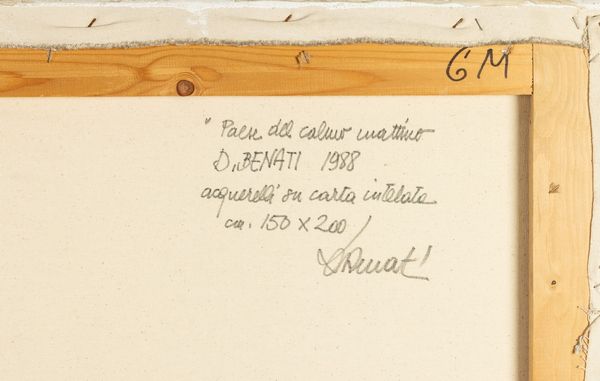 6 M
" Paese del calmo mattino
D. BENATI 1988
acquerelli su carta intelata
cm. 150 x 200
D Benati